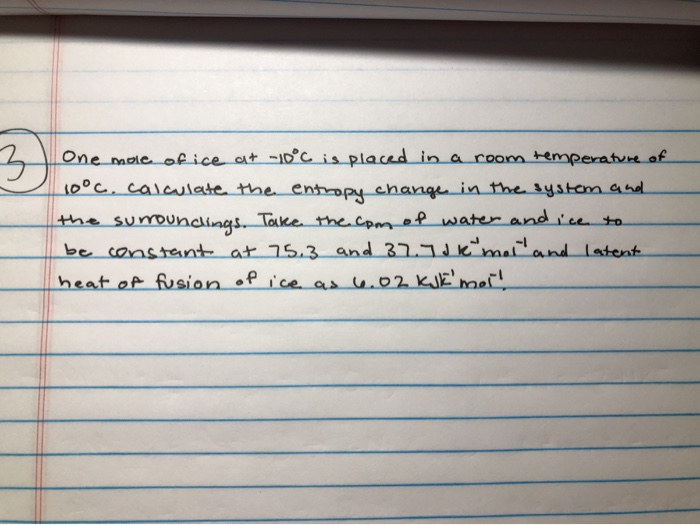 3
One mole of ice at -10°C is placed in a room temperature of
10°C. Calculate the entropy change in the system and
the surroundings. Take the Cpm of water and ice to
be constant at 75.3 and 37.7 J K⁻¹ mol⁻¹ and latent
heat of fusion of ice as 6.02 KJK⁻¹ mol⁻¹.